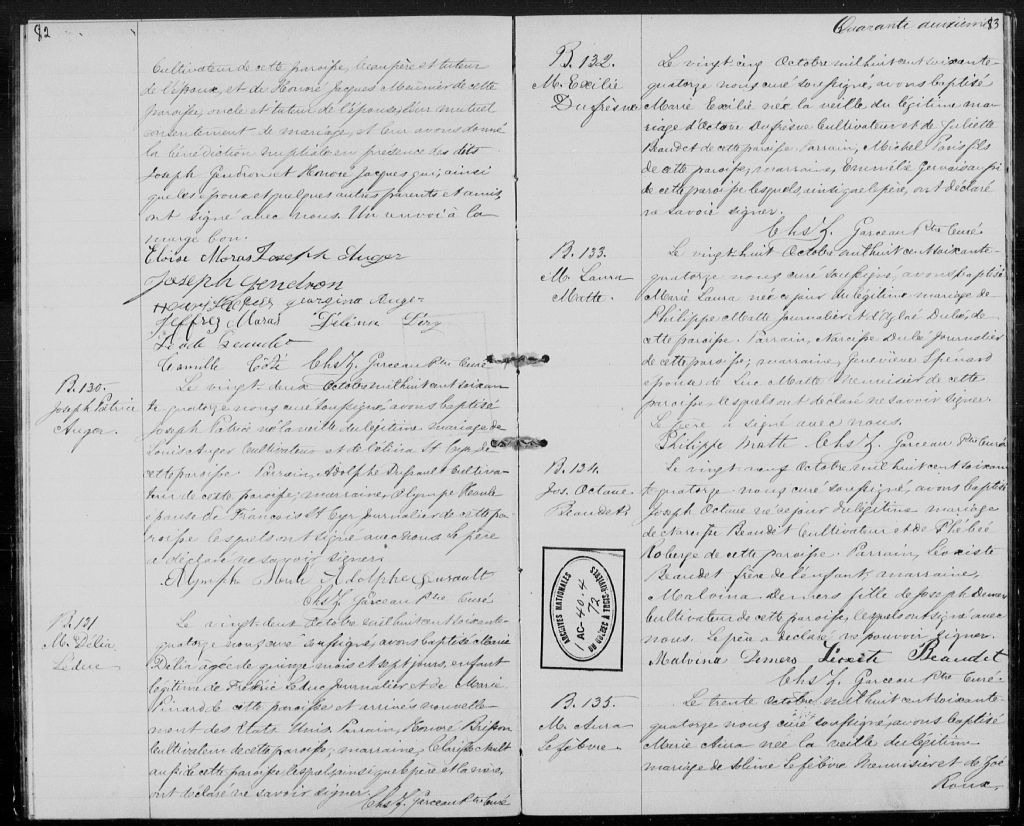 82
cultivateur de cette paroisse, beaupère et tuteur
de l'époux, et de Honoré Jacques Meunier de cette
paroisse, oncle et tuteur de l'épouse, leur mutuel
consentement de mariage, et leur avons donné
la bénédiction nuptiale en présence des dits
Joseph Gendron et Honoré Jacques qui, ainsi
que les époux et quelques autres parents et amis,
ont signé avec nous. Un renvoi à la
marge bon.
Eloise Moras Joseph Auger
Joseph Gendron
Georgina Auger
Jeffrey Maras Délima
Camille Côté Chs Z. Garceau Ptre Curé
B. 130.
Joseph Patrice
Auger.
Le vingt deux Octobre mil huit cent soixan
te quatorze nous curé soussigné, avons baptisé
Joseph Patrice né la veille du légitime mariage de
Louis Auger Cultivateur et de Célina St Cyr de
cette paroisse Parrain, Adolphe Dufault Cultiva-
teur de cette paroisse; marraine, Olympe Houle
épouse de François St Cyr Journalier de cette pa-
roisse lesquels ont signé avec nous le père
a déclaré ne savoir signer.
Olymphe Houle Adolphe Durault
Chs Z. Garceau Ptre Curé
B. 131
M. Délia
Leduc
Le vingt deux Octobre mil huit cent soixante-
quatorze nous curé soussigné, avons baptisé Marie
Délia agée de quinze mois et sept jours, enfant
légitime de Frédéric Leduc Journalier et de Marie
Pinard de cette paroisse et arrivés nouvelle
ment des Etats Unis. Parrain, Honoré Brisson
Cultivateur de cette paroisse; marraine, Clarisse
aussi de cette paroisse, lesquels ainsi que le père et la mère,
ont déclaré ne savoir signer.
Chs Z. Garceau Ptre Curé
Quarante deuxième 83
B. 132.
M. Exilie
Dufresne
Le vingt cinq Octobre mil huit cent soixante-
quatorze nous curé soussigné, avons baptisé
Marie Exilie née la veille du légitime ma-
riage d'Octave Dufresne Cultivateur et de Juliette
Beaudet de cette paroisse Parrain, Michel Paris fils
de cette paroisse; marraine, Emmélie Gervais aussi
de cette paroisse lesquels ainsi que le père, ont déclaré
ne savoir signer.
Chs Z. Garceau Ptre Curé
B. 133.
M. Laura
Matte.
Le vingt huit Octobre mil huit cent soixante-
quatorze nous curé soussigné, avons baptisé
Marie Laura née ce jour du légitime mariage de
Philippe Matte Journalier et d'Aglaé Dubé, de
cette paroisse. Parrain, Narcisse Dubé Journalier
de cette paroisse; marraine, Geneviève Spénard
épouse de Luc Matte Menuisier de cette
paroisse, lesquels ont déclaré ne savoir signer.
Le père a signé avec nous.
Philippe Matt Chs Z. Garceau Ptre Curé
B. 134.
Jos. Octave
Beaudet
Le vingt neuf Octobre mil huit cent soixan
te quatorze nous curé soussigné, avons baptisé
Joseph Octave né ce jour du légitime mariage
de Narcisse Beaudet Cultivateur et de Phébée
Roberge de cette paroisse. Parrain, Évariste
Beaudet frère de l'enfant, marraine,
Malvina Demers fille de Joseph Demers
Cultivateur de cette paroisse, lesquels ont signé avec
nous. Le père a déclaré ne pouvoir signer.
Malvina Demers Beaudet
Chs Z. Garceau Ptre Curé
ARCHIVES NATIONALES
AC-40.4
72
DU QUÉBEC À TROIS-RIVIÈRES
B. 135.
M. Aura
Lefebvre
Le trente Octobre mil huit cent soixante-
quatorze nous curé soussigné, avons baptisé
Marie Aura née la veille du légitime
mariage de Lefebvre Menuisier et de Zoé
Roux